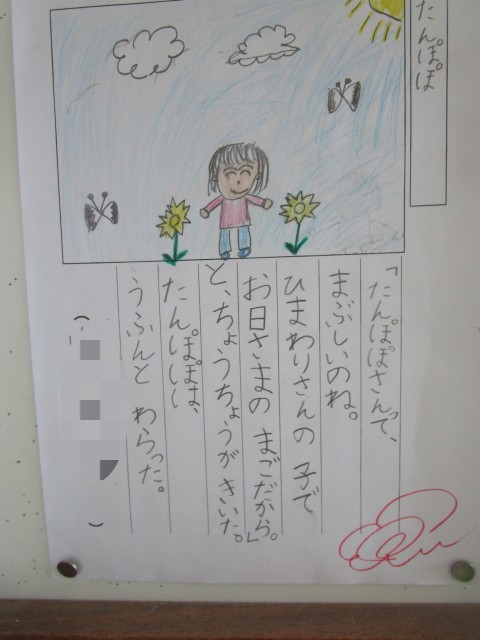 たんぽぽ
「たんぽぽさんって、
まぶしいのね。
ひまわりさんの 子で
お日さまの まごだから。」
と、ちょうちょうが きいた。
たんぽぽは、
うふんと わらった。